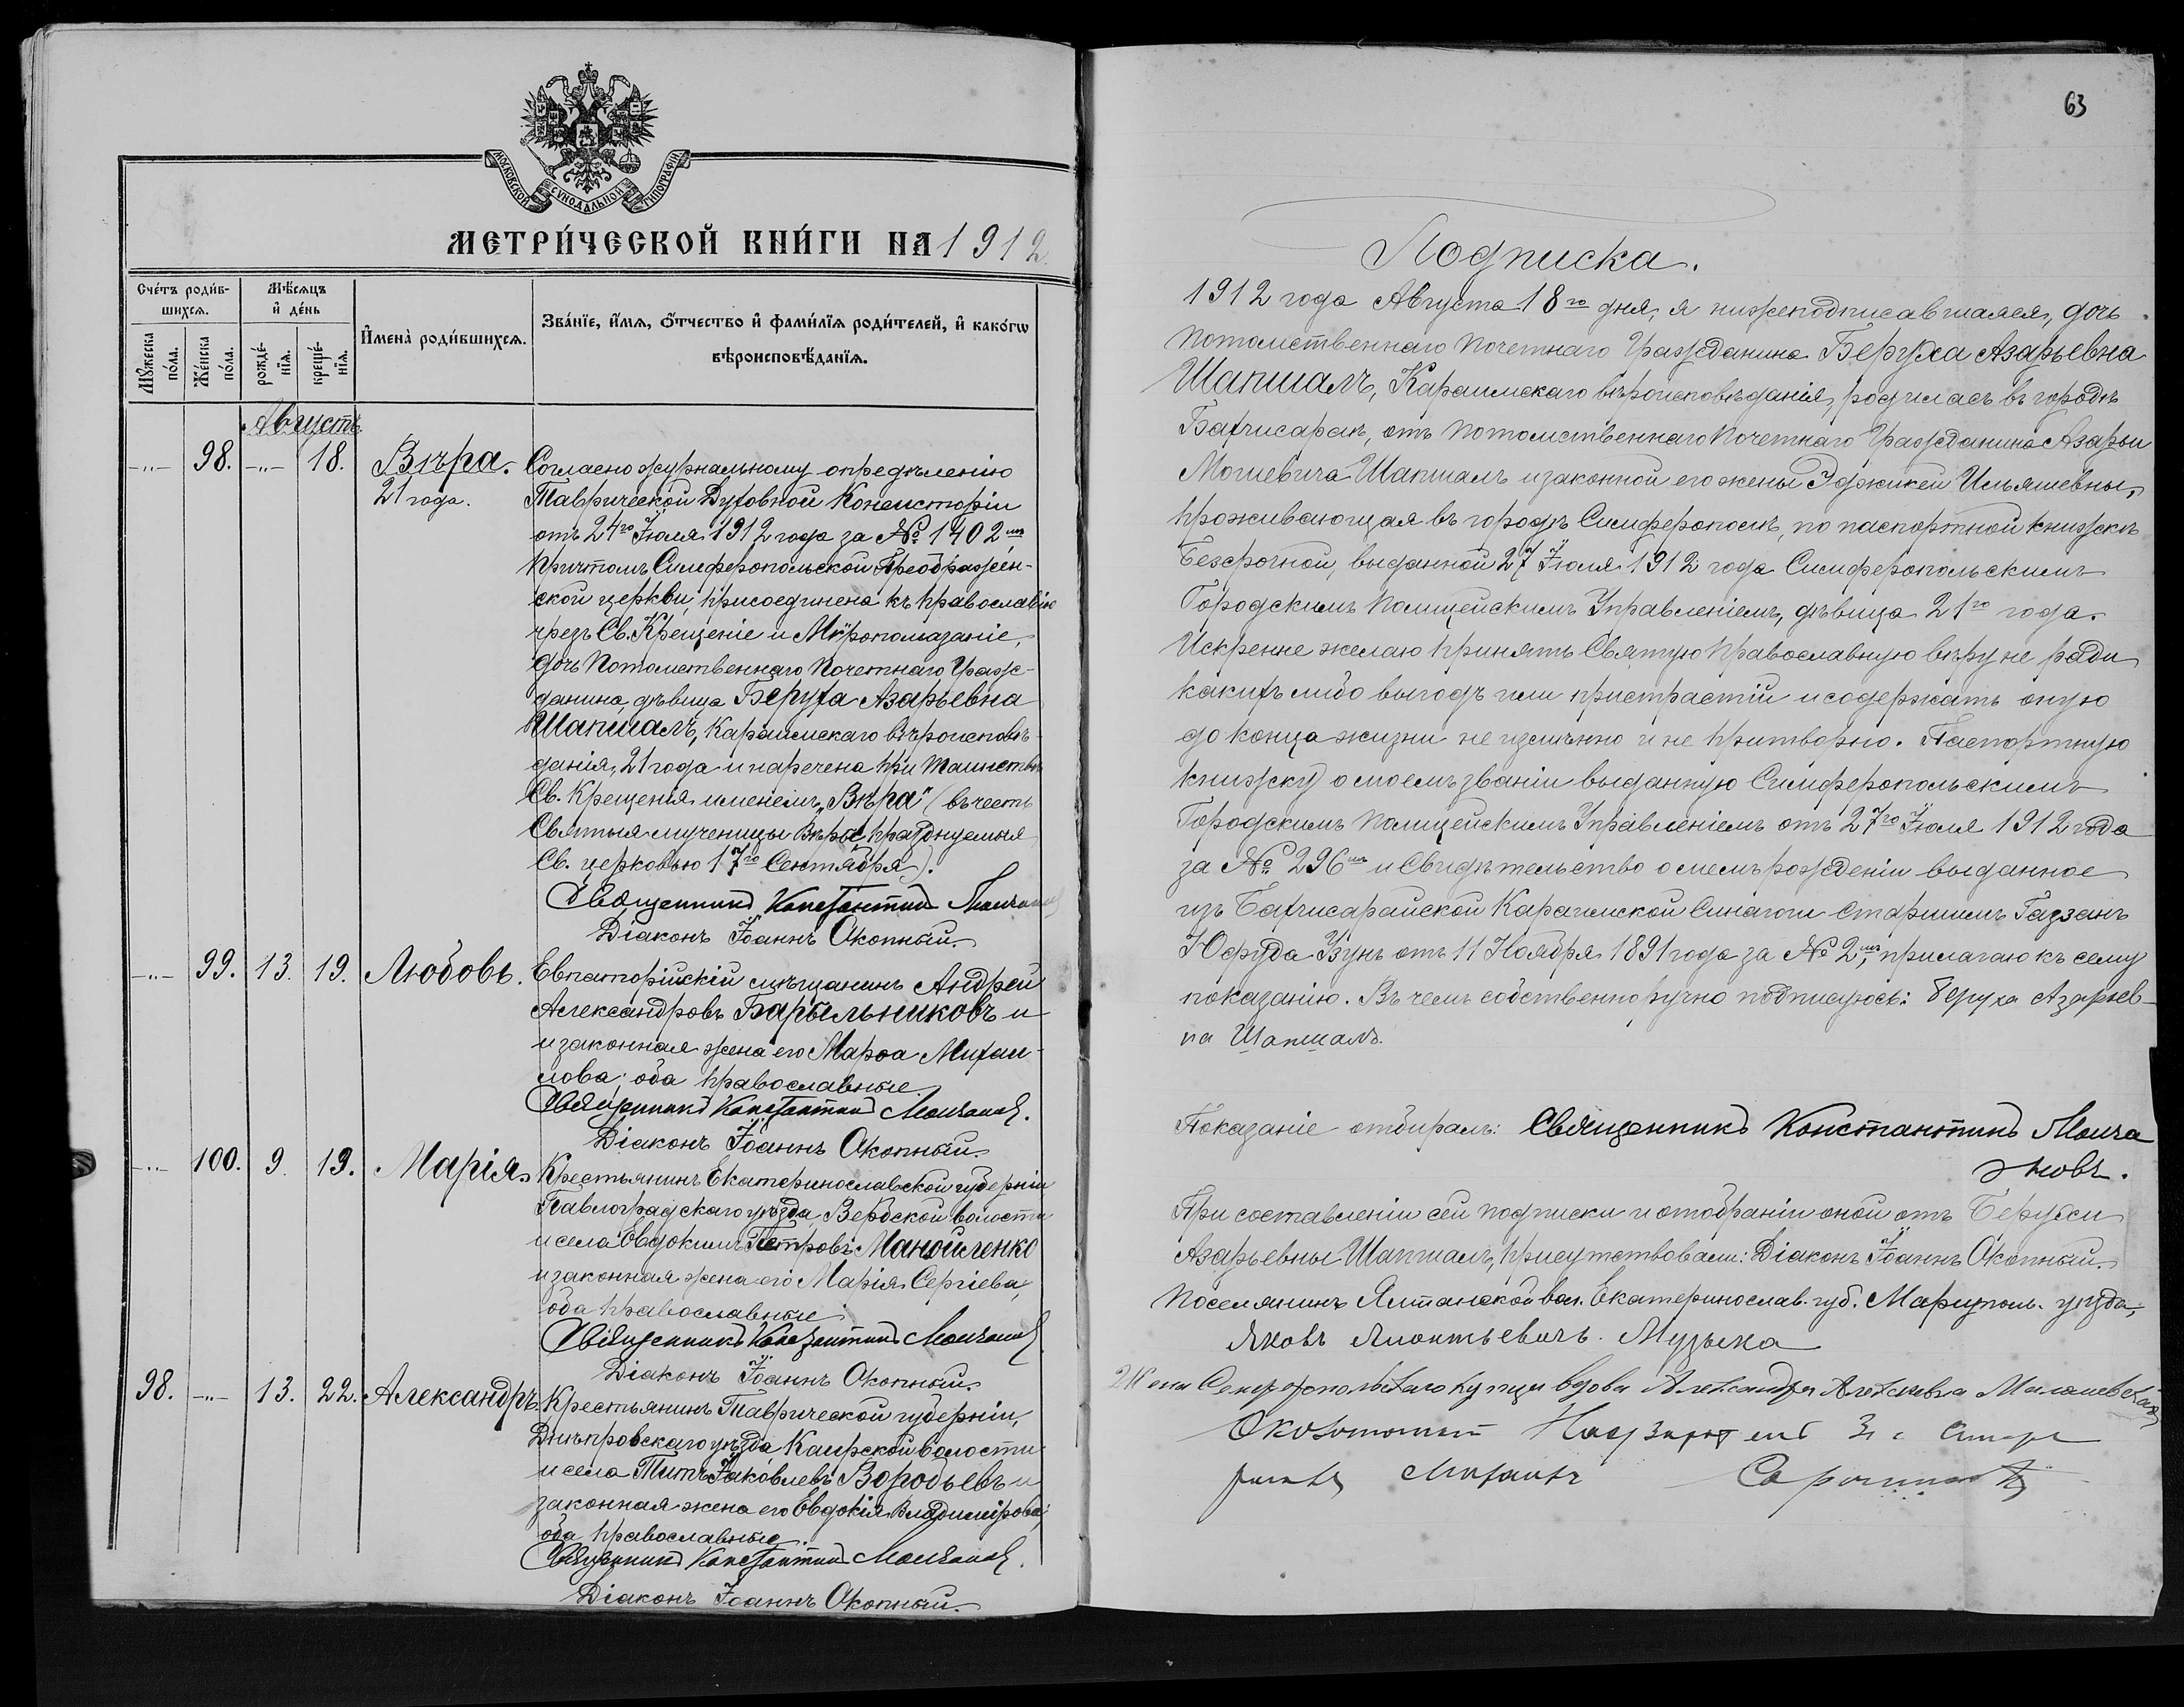 МОСКОВСКОЙ СѴНОДАЛЬНОЙ ТИПОГРАФІИ
МЕТРИ́ЧЕСКОЙ КНИ́ГИ НА 1912
Сче́тъ роди́в-
шихся.
Мѣ́сяцъ
и҆ де́нь
Мꙋ́жеска по́ла.
Же́нска по́ла.
рожде́-
нїѧ.
креще́-
нїѧ.
И҆мена̀ роди́вшихсѧ.
Зва́нїе, и҆́мѧ, ѻ҆́тчество и҆ фами́лїѧ роди́телей, и҆ како́гѡ
вѣроисповѣ́данїѧ.
Августъ.
-„- 98. -„- 18. Вѣра.
21 года.
Согласно журнальному опредѣленію
Таврической Духовной Консисторіи
отъ 24го Іюля 1912 года за № 1402мъ
причтомъ Симферопольской Преображен-
ской церкви, присоединена къ православію
чрезъ Св. Крещеніе и Мѵропомазаніе,
дочь Потомственнаго Почетнаго Граж-
данина, дѣвица Беруха Азарьевна
Шапшалъ, Караимскаго вѣроисповѣ-
данія, 21 года и наречена при таинствѣ
Св. Крещенія именемъ „Вѣра" (въ честь
Святыя мученицы Вѣры, празднуемыя
Св. церковью 17го Сентября).
Священникъ Константинъ Молчановъ
Діаконъ Іоаннъ Окопный.
-„- 99. 13. 19. Любовь.
Евпаторійскій мѣщанинъ Андрей
Александровъ Барыльниковъ и
и законная жена его Марѳа Михаи-
лова; оба православные.
Священникъ Константинъ Молчановъ.
Діаконъ Іоаннъ Окопный.
-„- 100. 9. 19. Марія.
Крестьянинъ Екатеринославской губерніи
Павлоградскаго уѣзда, Вербской волости
и села Евдокимъ Петровъ Манойленко
и законная жена его Марія Сергіева,
оба православные
Священникъ Константинъ Молчановъ
Діаконъ Іоаннъ Окопный.
98. -„- 13. 22. Александръ.
Крестьянинъ Таврической губерніи,
Днѣпровскаго уѣзда, Каирской волости
и села Титъ Іаковлевъ Воробьевъ и
законная жена его Евдокія Владимірова,
оба православные.
Священникъ Константинъ Молчановъ.
Діаконъ Іоаннъ Окопный.
63
Подписка.
1912 года Августа 18го дня, я нижеподписавшаяся, дочь
Потомственнаго Почетнаго Гражданина Беруха Азарьевна
Шапшалъ, Караимскаго вѣроисповѣданія, родилась въ городѣ
Бахчисараѣ, отъ Потомственнаго Почетнаго Гражданина Азарьи
Мошевича Шапшалъ и законной его жены Эджикеи Ильяшевны,
проживающая въ городѣ Симферополѣ, по паспортной книжкѣ
безсрочной, выданной 27 Іюля 1912 года Симферопольскимъ
Городскимъ Полицейскимъ Управленіемъ, дѣвица 21го года.
Искренне желаю принять Святую Православную вѣру не ради
какихъ либо выгодъ или пристрастій и содержать оную
до конца жизни не измѣнно и не притворно. Паспортную
книжку о моемъ званіи выданную Симферопольскимъ
Городскимъ Полицейскимъ Управленіемъ отъ 27го Іюля 1912 года
за № 296мъ и Свидѣтельство о моемъ рожденіи выданное
изъ Бахчисарайской Караимской Синагоги Старшимъ Газзанъ
Юфуда Узунъ отъ 11 Ноября 1891 года за № 2мъ, прилагаю къ сему
показанію. Въ чемъ собственноручно подписуюсь: Беруха Азарьев-
на Шапшалъ.
Показаніе отбиралъ: Священникъ Константинъ Молча
новъ.
При составленіи сей подписки и отобраніи оной отъ Берухи
Азарьевны Шапшалъ, присутствовали: Діаконъ Іоаннъ Окопный.
Поселянинъ Ялтанской вол. Екатеринослав. губ. Маріупол. уѣзда,
Яковъ Леонтьевичъ Музыка
Жена Симферопольскаго купца вдова Александра Алексѣевна
Околоточный Надзиратель